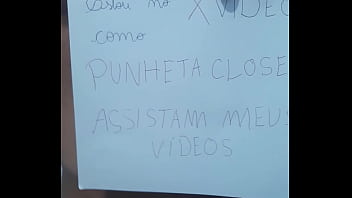 Estou no XVIDEO
como
PUNHETA CLOSE
ASSISTAM MEUS
VIDEOS